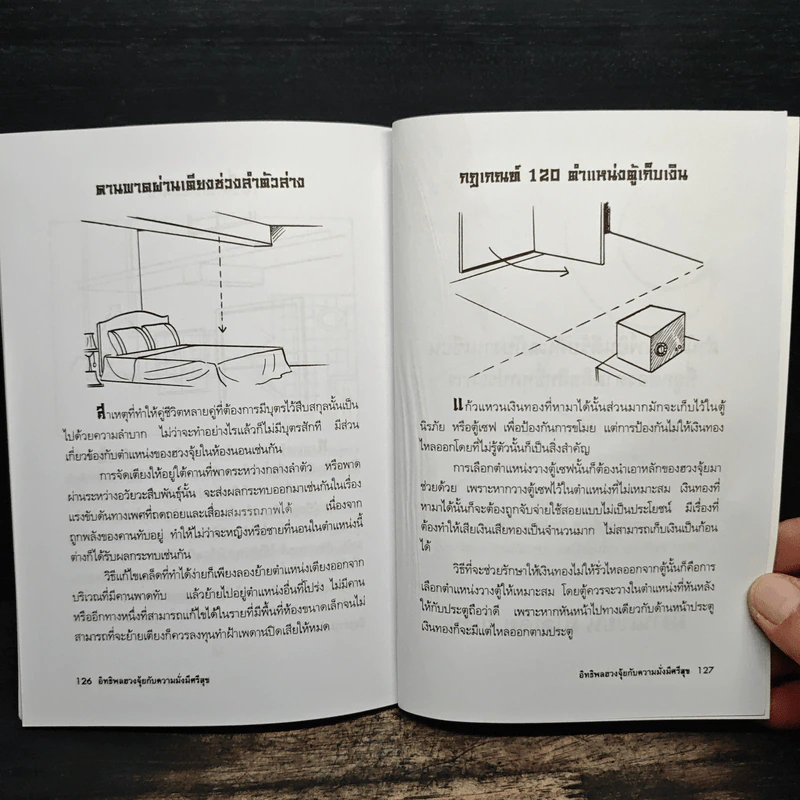 คานพาดผ่านเตียงช่วงลำตัวล่าง
สาเหตุที่ทำให้คู่ชีวิตหลายคู่ที่ต้องการมีบุตรไว้สืบสกุลนั้นเป็น
ไปด้วยความลำบาก ไม่ว่าจะทำอย่างไรแล้วก็ไม่มีบุตรสักที มีส่วน
เกี่ยวข้องกับตำแหน่งของฮวงจุ้ยในห้องนอนเช่นกัน
การจัดเตียงให้อยู่ใต้คานที่พาดระหว่างกลางลำตัว หรือพาด
ผ่านระหว่างอวัยวะสืบพันธุ์นั้น จะส่งผลกระทบออกมาเช่นกันในเรื่อง
แรงขับดันทางเพศที่ถดถอยและเสื่อมสมรรถภาพได้ เนื่องจาก
ถูกพลังของคานทับอยู่ ทำให้ไม่ว่าจะหญิงหรือชายที่นอนในตำแหน่งนี้
ต่างก็ได้รับผลกระทบเช่นกัน
วิธีแก้ไขเคล็ดที่ทำได้ง่ายก็เพียงลองย้ายตำแหน่งเตียงออกจาก
บริเวณที่มีคานพาดทับ แล้วย้ายไปอยู่ตำแหน่งอื่นที่โปร่ง ไม่มีคาน
หรืออีกทางหนึ่งที่สามารถแก้ไขได้ในรายที่มีพื้นที่ห้องขนาดเล็กจนไม่
สามารถที่จะย้ายเตียงก็ควรลงทุนทำฝ้าเพดานปิดเสียให้หมด
126 อิทธิพลฮวงจุ้ยกับความมั่งมีศรีสุข
กฎเกณฑ์ 120 ตำแหน่งตู้เก็บเงิน
แก้วแหวนเงินทองที่หามาได้นั้นส่วนมากมักจะเก็บไว้ในตู้
นิรภัย หรือตู้เซฟ เพื่อป้องกันการขโมย แต่การป้องกันไม่ให้เงินทอง
ไหลออกโดยที่ไม่รู้ตัวนั้นก็เป็นสิ่งสำคัญ
การเลือกตำแหน่งวางตู้เซฟนั้นก็ต้องนำเอาหลักของฮวงจุ้ยมา
ช่วยด้วย เพราะหากวางตู้เซฟไว้ในตำแหน่งที่ไม่เหมาะสม เงินทองที่
หามาได้นั้นก็จะต้องถูกจับจ่ายใช้สอยแบบไม่เป็นประโยชน์ มีเรื่องที่
ต้องทำให้เสียเงินเสียทองเป็นจำนวนมาก ไม่สามารถเก็บเงินเป็นก้อน
ได้
วิธีที่จะช่วยรักษาให้เงินทองไม่ให้รั่วไหลออกจากตู้นั้นก็คือการ
เลือกตำแหน่งวางตู้ให้เหมาะสม โดยตู้ควรจะวางในตำแหน่งที่หันหลัง
ให้กับประตูถือว่าดี เพราะหากหันหน้าไปทางเดียวกับด้านหน้าประตู
เงินทองก็จะมีแต่ไหลออกตามประตู
อิทธิพลฮวงจุ้ยกับความมั่งมีศรีสุข 127